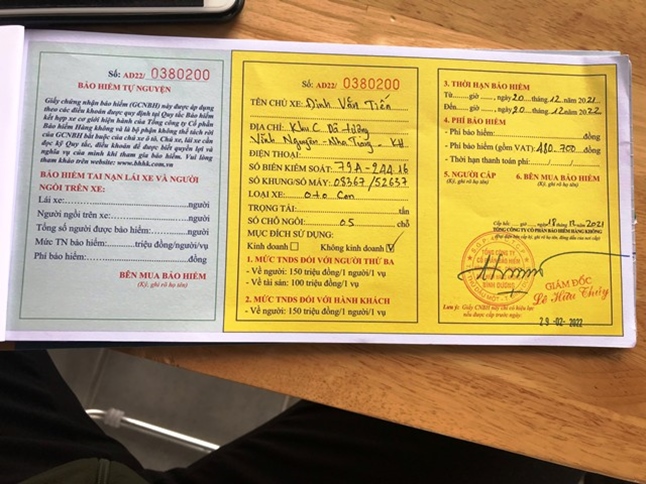 Số: AD22/ 0380200
BẢO HIỂM TỰ NGUYỆN
Giấy chứng nhận bảo hiểm (GCNBH) này được áp dụng
theo các điều khoản được quy định tại Quy tắc Bảo hiểm
kết hợp xe cơ giới hiện hành của Tổng công ty Cổ phần
Bảo hiểm Hàng không và là bộ phận không thể tách rời
của GCNBH bắt buộc của chủ xe ô tô. Chủ xe, lái xe cần
đọc kỹ Quy tắc, điều khoản để được biết quyền lợi và
nghĩa vụ của mình khi tham gia bảo hiểm. Vui lòng
tham khảo trên website: www.bhhk.com.vn
BẢO HIỂM TAI NẠN LÁI XE VÀ NGƯỜI
NGỒI TRÊN XE:
Lái xe:...người
Người ngồi trên xe:...người
Tổng số người được bảo hiểm:...người
Mức TN bảo hiểm:...triệu đồng/người/vụ
Phí bảo hiểm:...đồng
BÊN MUA BẢO HIỂM
(Ký, ghi rõ họ tên)
Số: AD22/ 0380200
TÊN CHỦ XE: Đinh Văn Tiến
ĐỊA CHỈ: Khu C Đô tường
Vĩnh Nguyên - Nha Trang - KH
ĐIỆN THOẠI:
SỐ BIỂN KIỂM SOÁT: 79A - 244.16
SỐ KHUNG/SỐ MÁY: 08367/52637
LOẠI XE: o to con
TRỌNG TẢI:...tấn
SỐ CHỖ NGỒI: 05 chỗ
MỤC ĐÍCH SỬ DỤNG:
Kinh doanh Không kinh doanh
1. MỨC TNDS ĐỐI VỚI NGƯỜI THỨ BA
- Về người: 150 triệu đồng/1 người/1 vụ
- Về tài sản: 100 triệu đồng/1 vụ
2. MỨC TNDS ĐỐI VỚI HÀNH KHÁCH
- Về người: 150 triệu đồng/1 người/1 vụ
3. THỜI HẠN BẢO HIỂM
Từ......giờ......, ngày 20 tháng 12 năm 2021
Đến......giờ......, ngày 20 tháng 12 năm 2022
4. PHÍ BẢO HIỂM
- Phí bảo hiểm:...đồng
- Phí bảo hiểm (gồm VAT): 480.700 đồng
- Thời hạn thanh toán phí:....../....../......
5. NGƯỜI CẤP 6. BÊN MUA BẢO HIỂM
(Ký, ghi rõ họ tên) (Ký, ghi rõ họ tên)
Cấp hồi: giờ, ngày 18 tháng 12 2021
TỔNG CÔNG TY CỔ PHẦN BẢO HIỂM HÀNG KHÔNG
TỔNG CÔNG TY
CỔ PHẦN BẢO HIỂM
BÌNH DƯƠNG
GIÁM ĐỐC
Lê Hữu Thủy
Lưu ý: Giấy CNBH này chỉ có hiệu lực
nếu được cấp trước ngày:
29 -02- 2022